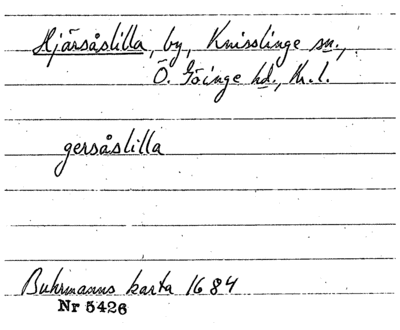 Hjärsåslilla, by, Knisslinge sn.,
Ö. Göinge hd., Kr. l.
gersåslilla
Buhrmanns karta 1684
Nr 5426